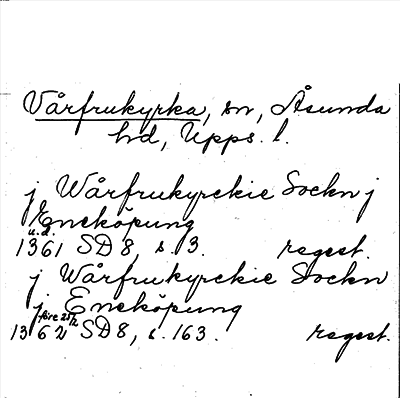 Vårfrukyrka, sn, Åsunda
hd, Upps. l.
j Wårfrukyrckie Sockn j
Eneköpung
u.d.
1361 SD 8, s. 3. regest.
j Wårfrukyrckie Sockn
j. Eneköpung
före 25/2
1362 SD 8, s. 163. regest.